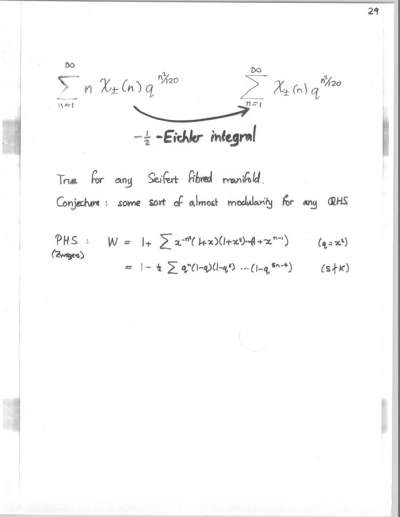 29
∞ ∑ n=1 n χ±(n) q^{n²/120} ∞ ∑ n=1 χ±(n) q^{n²/120}
-½-Eichler integral
True for any Seifert fibred manifold.
Conjecture: some sort of almost modularity for any QHS
PHS: W = 1+ ∑ x^{-n²}(1+x)(1+x²)⋯(1+x^{n-1}) (q=x²)
= 1 - ½ ∑ qⁿ(1-q)(1-q²) ⋯